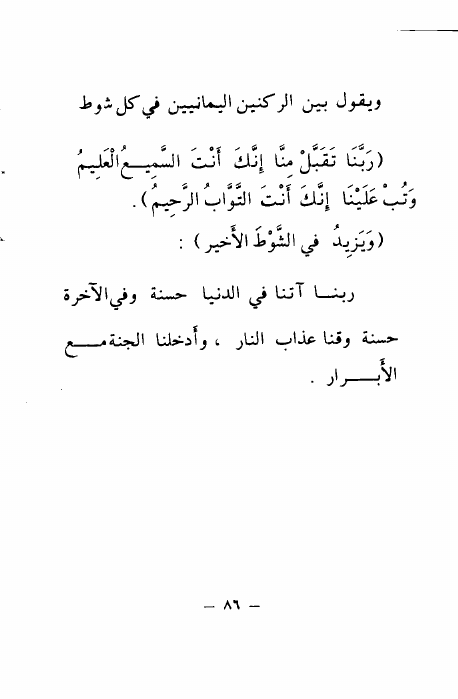 ويقول بين الركنين اليمانيين في كل شوط
(رَبَّنَا تَقَبَّلْ مِنَّا إِنَّكَ أَنْتَ السَّمِيـعُ الْعَلِيمُ
وَتُبْ عَلَيْنَا إِنَّكَ أَنْتَ التَّوَّابُ الرَّحِيمُ).
(وَيَزِيدُ في الشَّوْطَ الأَخير) :
ربنـا آتنا في الدنيا حسنة وفي الآخرة
حسنة وقنا عذاب النار ، وأدخلنا الجنة مـع
الأبـرار .
— ٨٦ —